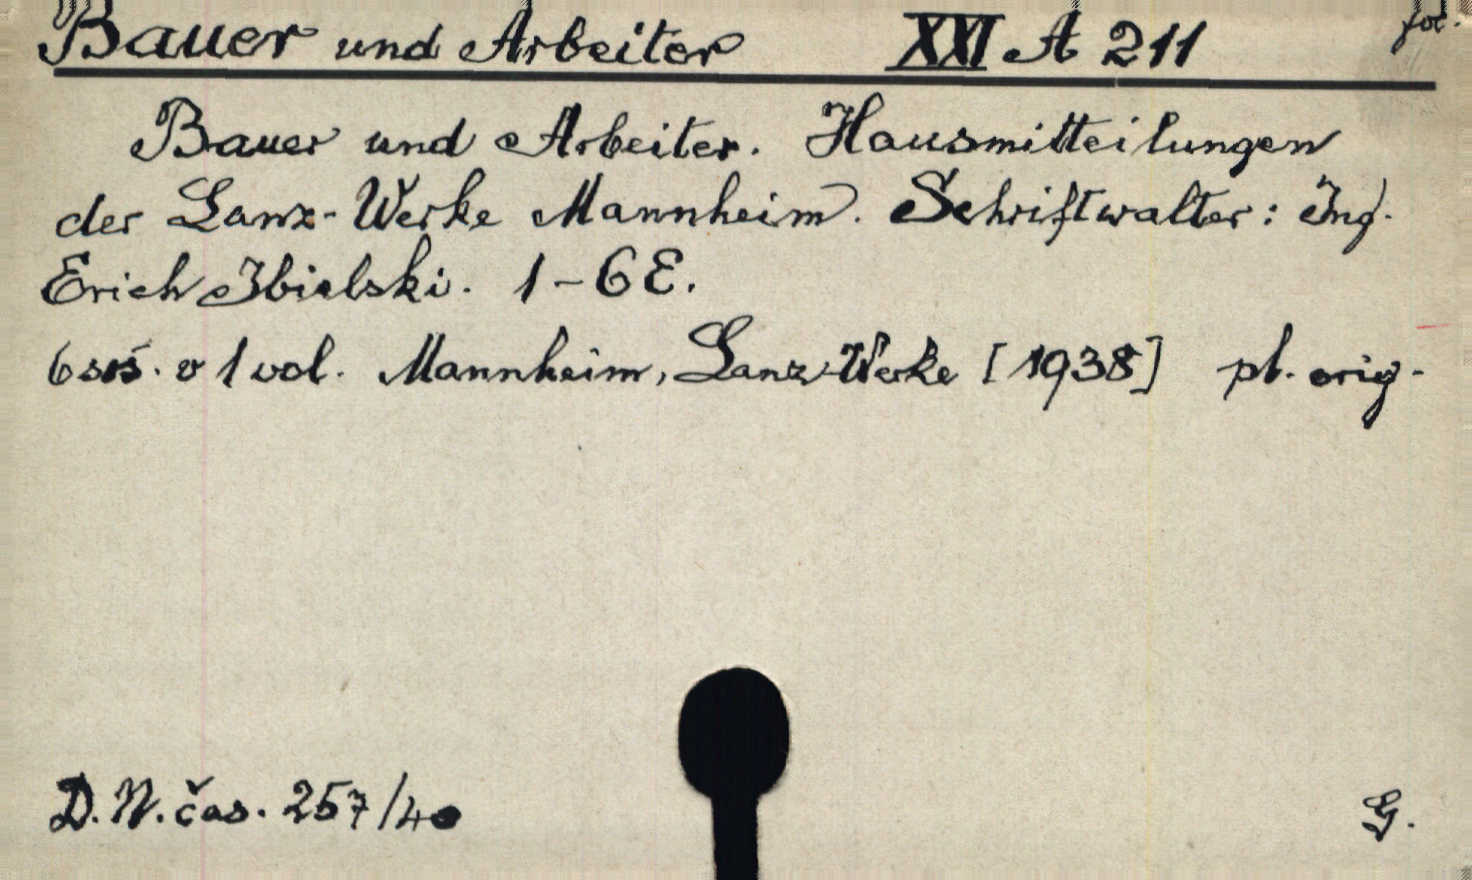 Bauer und Arbeiter XXI A 211 fol.
Bauer und Arbeiter. Hausmitteilungen
der Lanz-Werke Mannheim. Schriftwalter: Ing.
Erich Zbielski. 1-6 E.
6 seš. v 1 vol. Mannheim, Lanz-Werke [1938] pl. orig.
D. N. čas. 257/40 G.